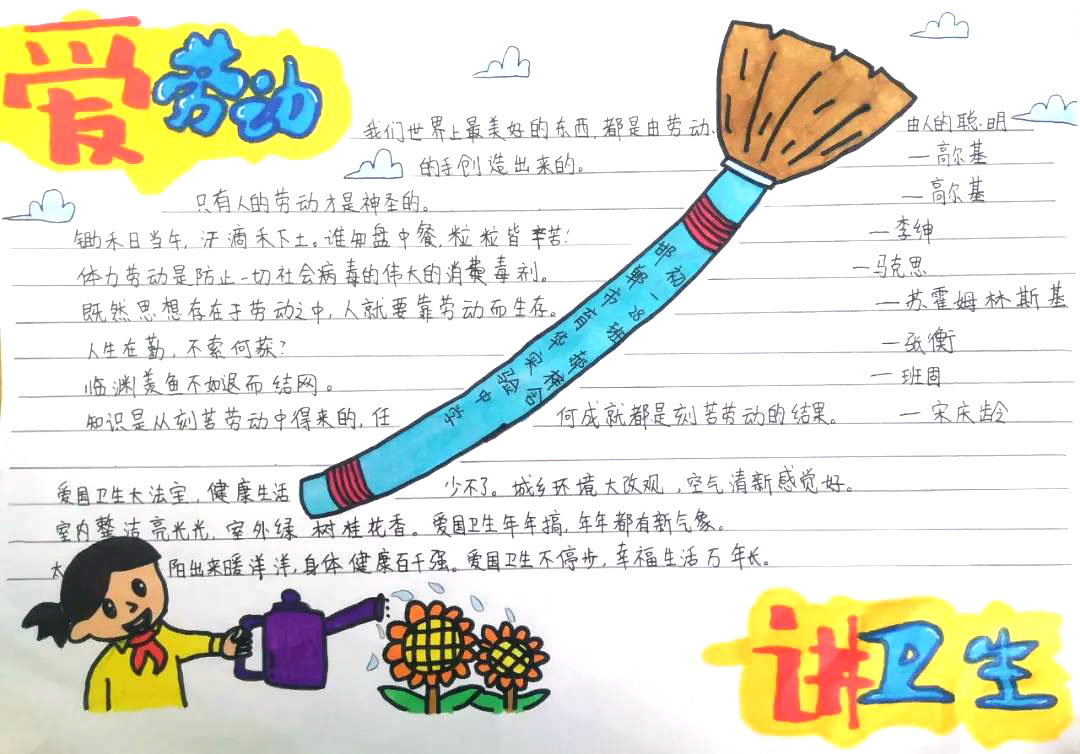 爱劳动
我们世界上最美好的东西,都是由劳动、由人的聪明
的手创造出来的。 —高尔基
只有人的劳动才是神圣的。 —高尔基
锄禾日当午,汗滴禾下土。谁知盘中餐,粒粒皆辛苦! —李绅
体力劳动是防止一切社会病毒的伟大的消费毒剂。 —马克思
既然思想存在于劳动之中,人就要靠劳动而生存。 —苏霍姆林斯基
人生在勤,不索何获? —张衡
临渊羡鱼不如退而结网。 —班固
知识是从刻苦劳动中得来的,任何成就都是刻苦劳动的结果。 —宋庆龄
邯郸市育华实验中学
初一28班郝梓含
爱国卫生大法宝,健康生活少不了。城乡环境大改观,空气清新感觉好。
室内整洁亮光光,室外绿树桂花香。爱国卫生年年搞,年年都有新气象。
太阳出来暖洋洋,身体健康百千强。爱国卫生不停步,幸福生活万年长。
讲卫生